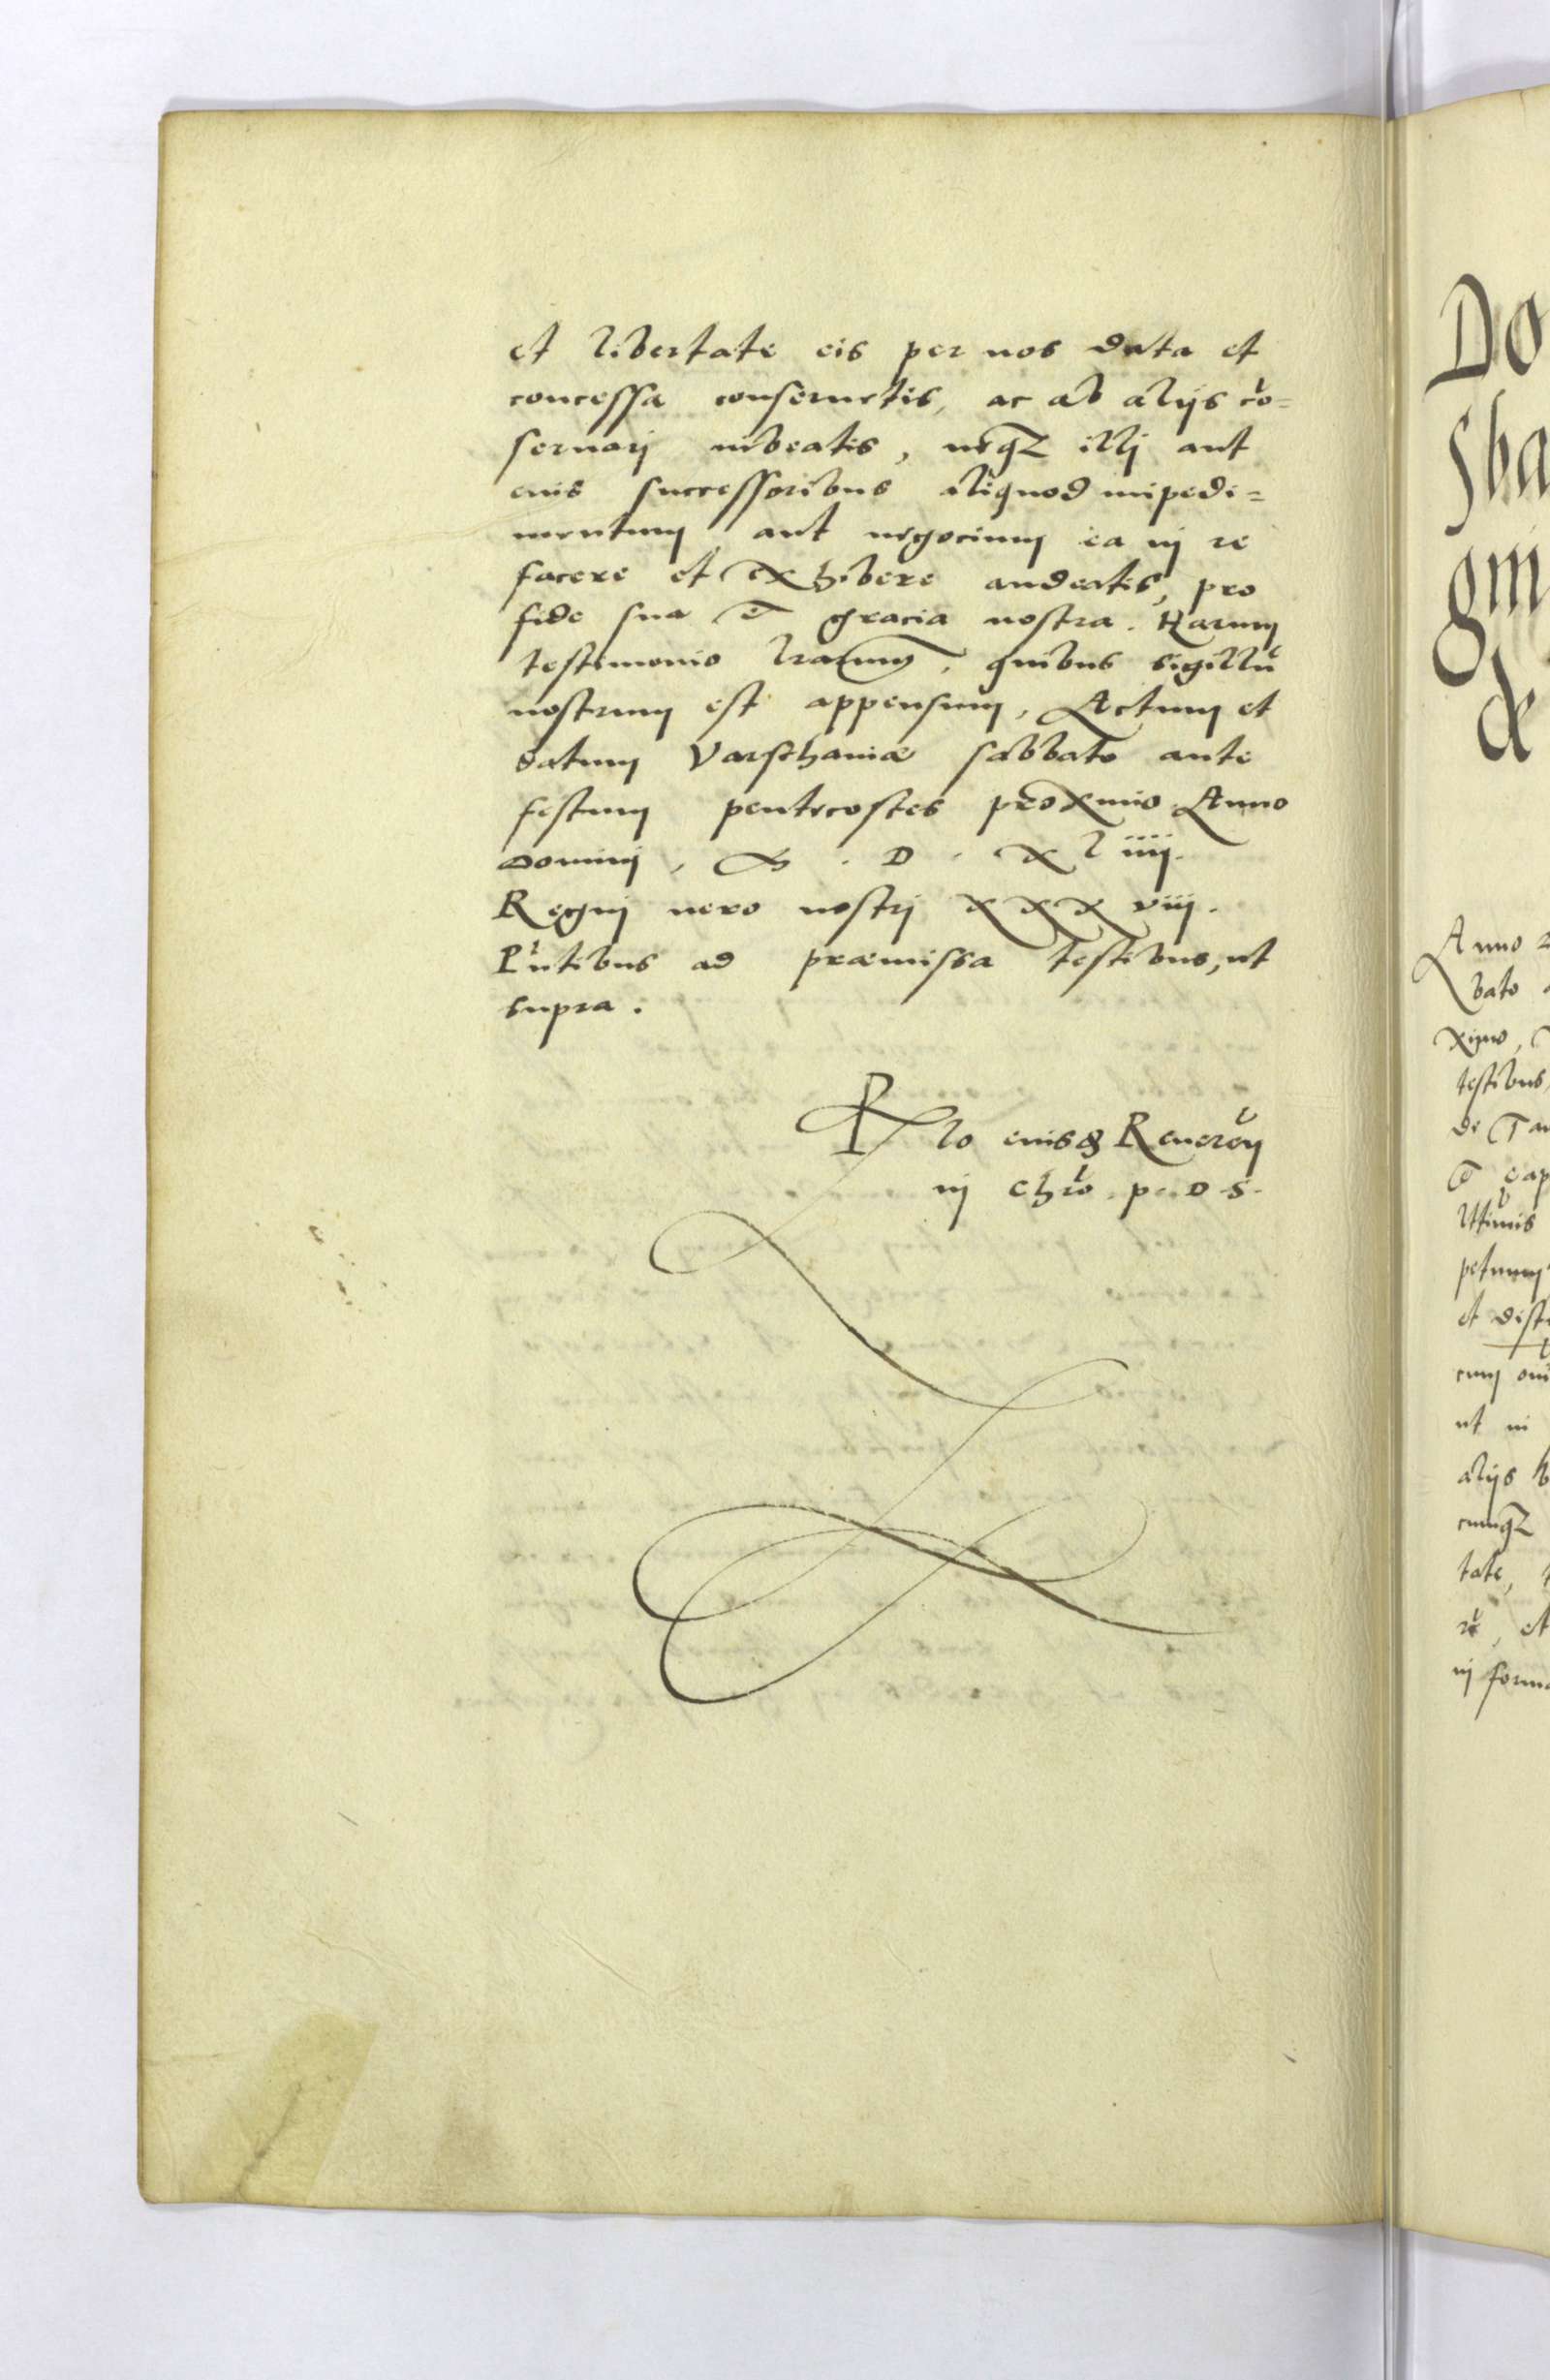 et libertate eis per nos data et
concessa conseruetis, ac ab alijs cō=
seruarj iubeatis, neqz illj aut
eius successoribus aliquod impedi=
mentum aut negocium ea in re
facere et exhibere audeatis, pro
fide sua et gracia nostra. Harum
testimonio lrarum, quibus sigillū
nostrum est appensum, Actum et
datum Varschaniæ sabbato ante
festum pentecostes proximo Anno
Dominj, M . D . X l iiij.
Regnj vero nostrj X X X viij.
Pn̄tibus ad præmissa testibus, ut
supra.
Rlo eiusd Reuerēn
in Chrō p. D. S.
Do
sba
gm
&
Anno
bato
ximo,
testibus
de Tar
et cap
Vltimis
petuum
et dist
cum
ut in
alijs
cumqz
tate,
et
in form